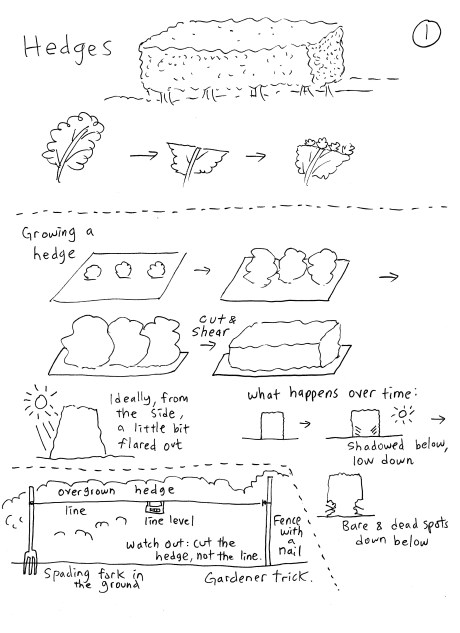 Hedges
1
Growing a
hedge
cut &
shear
Ideally, from
the side,
a little bit
flared out
what happens over time:
Shadowed below,
low down
Bare & dead spots
down below
overgrown hedge
line
line level
Watch out: cut the
hedge, not the line.
Fence
with
a
nail
Spading fork in
the ground
Gardener trick.